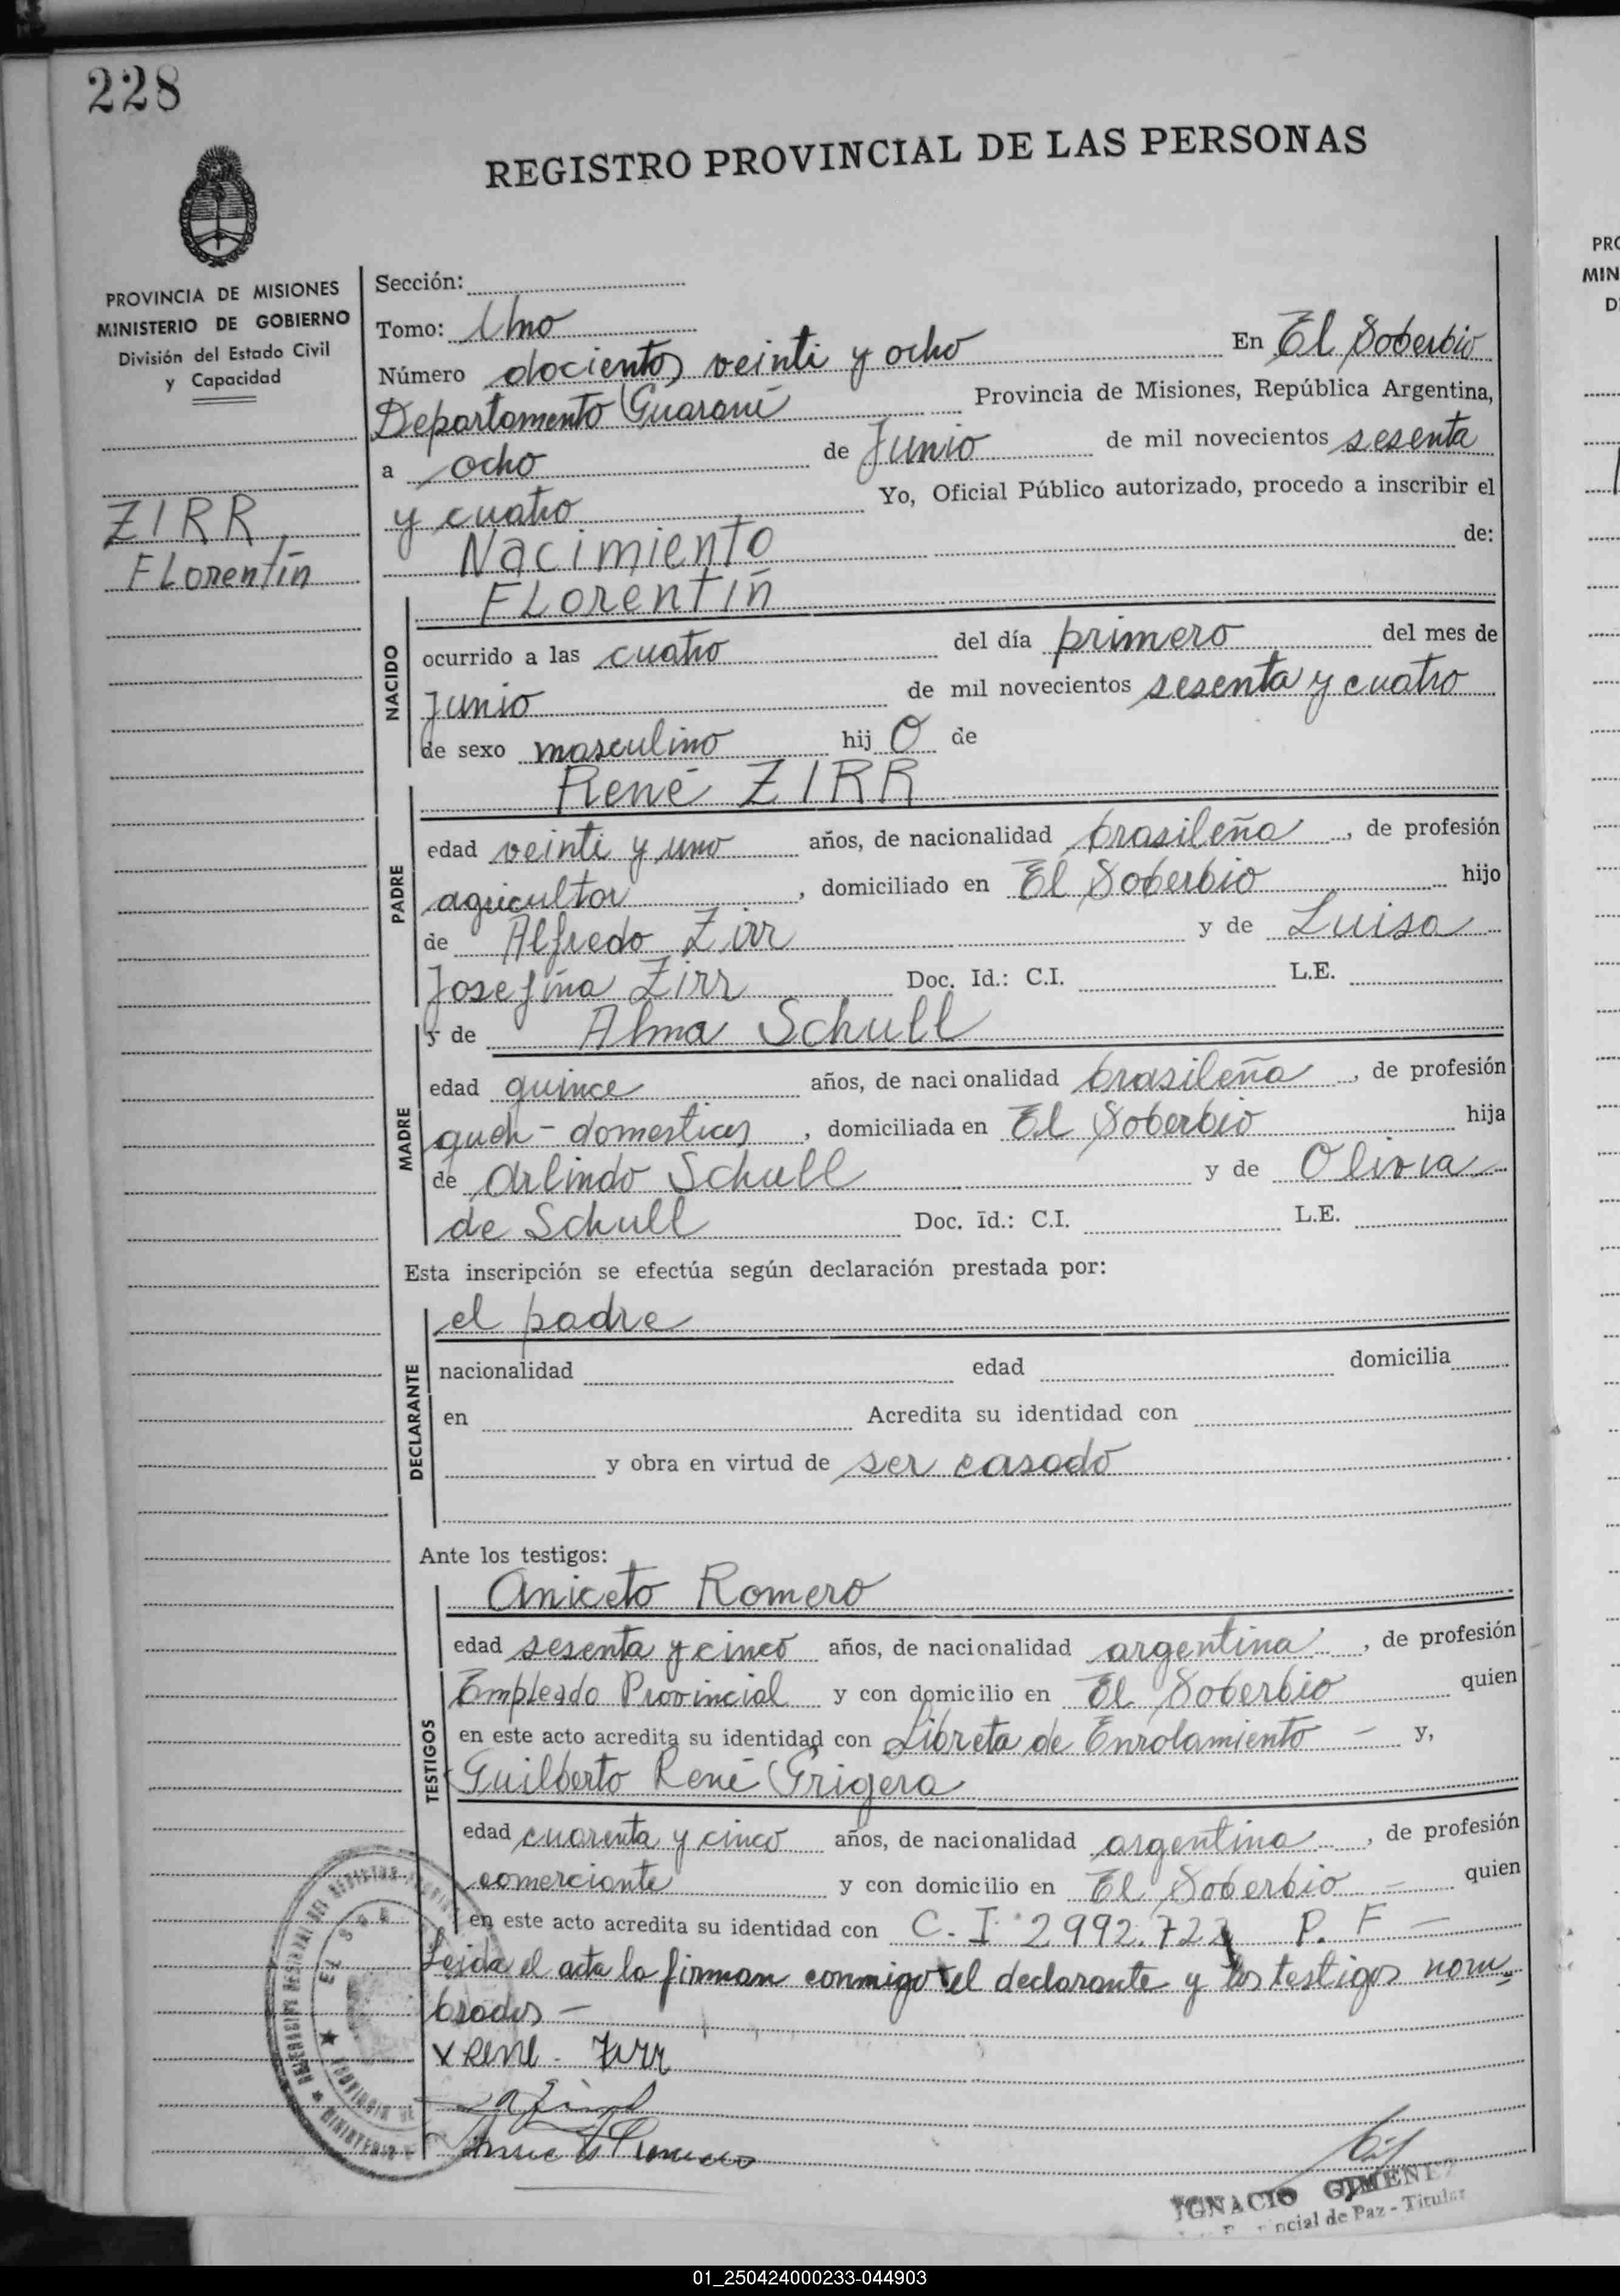 228
REGISTRO PROVINCIAL DE LAS PERSONAS
PROVINCIA DE MISIONES
MINISTERIO DE GOBIERNO
División del Estado Civil
y Capacidad
ZIRR
Florentin
Sección:
Tomo: Uno
Número dociento) veinti y ocho En El Soberbio
Departamento Guaraní Provincia de Misiones, República Argentina,
a ocho de Junio de mil novecientos sesenta
y cuatro Yo, Oficial Público autorizado, procedo a inscribir el
Nacimiento de:
Florentin
NACIDO
ocurrido a las cuatro del día primero del mes de
Junio de mil novecientos sesenta y cuatro
de sexo masculino hij O de
René ZIRR
PADRE
edad veinti y uno años, de nacionalidad brasileña, de profesión
agricultor, domiciliado en El Soberbio hijo
de Alfredo Zirr y de Luisa
Josefina Zirr Doc. Id.: C.I. L.E.
y de Alma Schull
MADRE
edad quince años, de nacionalidad brasileña, de profesión
queh-domestico), domiciliada en El Soberbio hija
de Arlindo Schull y de Olivia
de Schull Doc. Id.: C.I. L.E.
Esta inscripción se efectúa según declaración prestada por:
el padre
DECLARANTE
nacionalidad edad domicilia
en Acredita su identidad con
y obra en virtud de ser casado
Ante los testigos:
Aniceto Romero
TESTIGOS
edad sesenta y cinco años, de nacionalidad argentina, de profesión
Empleado Provincial y con domicilio en El Soberbio quien
en este acto acredita su identidad con Libreta de Enrolamiento - y,
Guilberto René Grigera
edad cuarenta y cinco años, de nacionalidad argentina, de profesión
comerciante y con domicilio en El Soberbio - quien
en este acto acredita su identidad con C. I 2992.722 P. F -
Leida el acta la firman conmigo el declarante y los testigos nom=
brados -
x Rene. Zirr
IGNACIO GIMENEZ
ncial de Paz - Titular
01_250424000233-044903